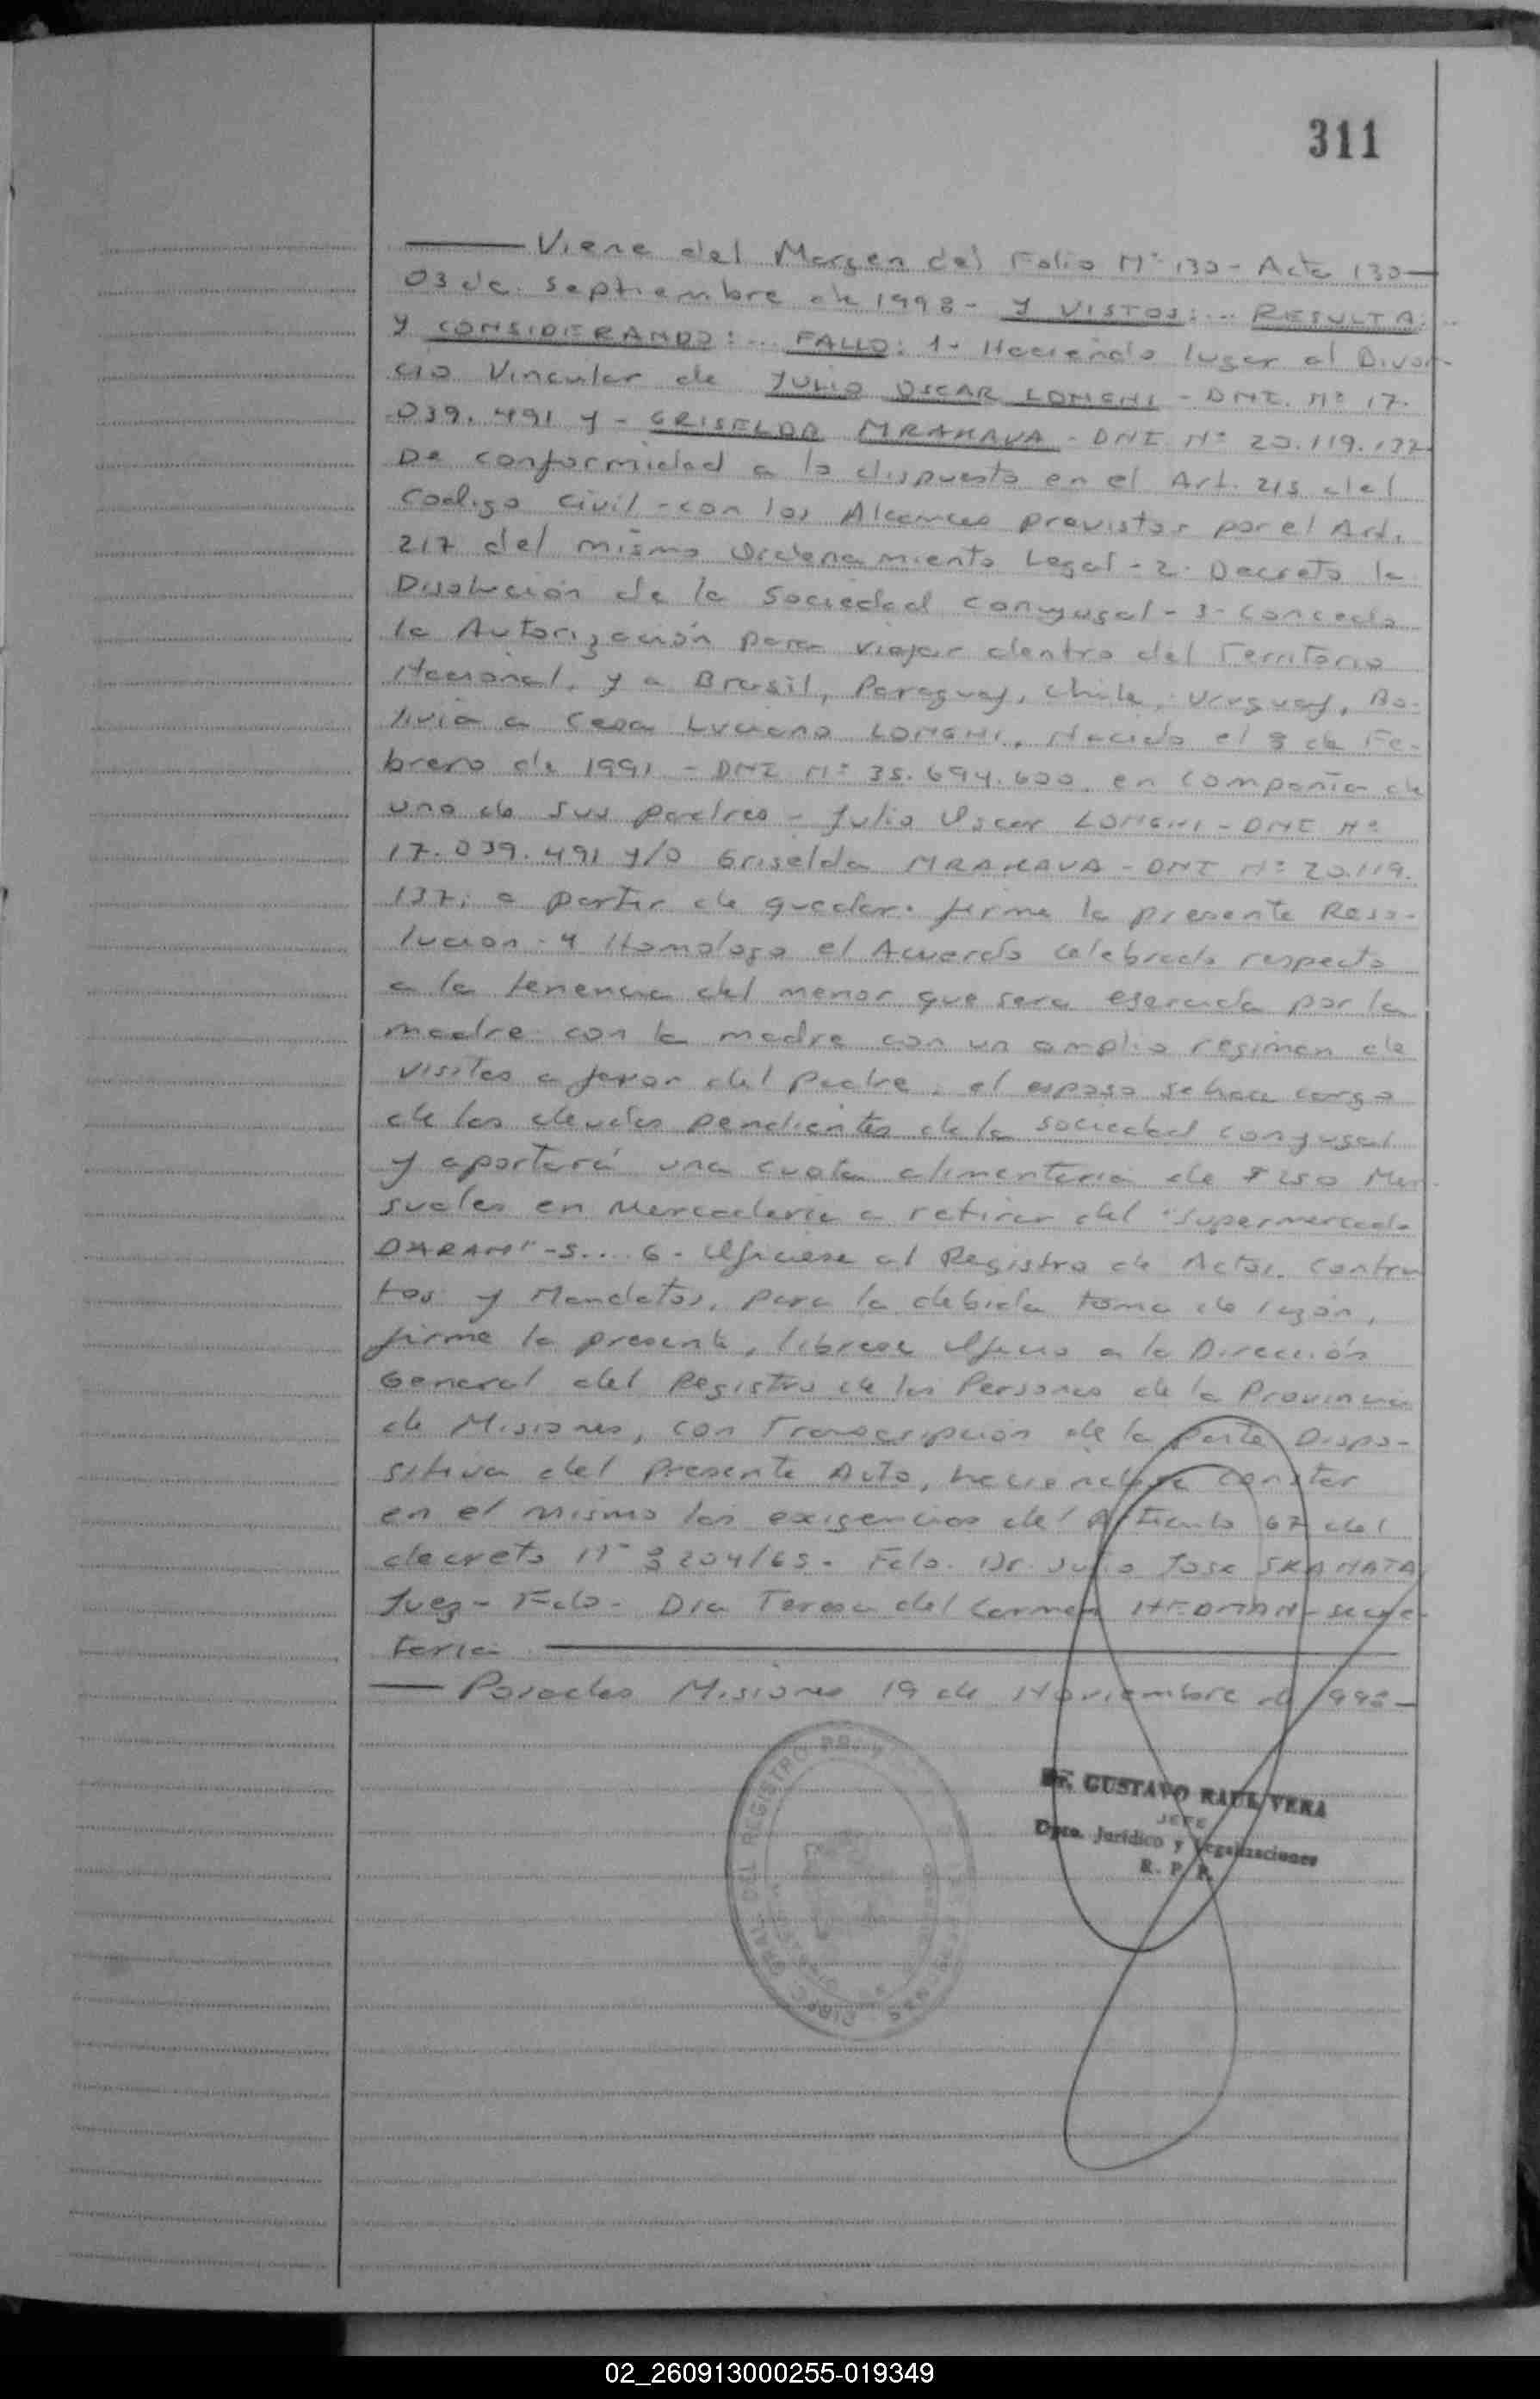 311
Viene del Margen del Folio Nº 130 - Acta 130
03 de Septiembre de 1998 - Y VISTOS: ... RESULTA: ..
Y CONSIDERANDO: ... FALLO: 1- Haciendo lugar al Divor-
cio Vincular de JULIO OSCAR LONGHI - DNI. Nº 17.
039.491 y - GRISELDA MRAKAVA - DNI Nº 20.119.137
De conformidad a lo dispuesto en el Art. 215 del
Codigo Civil - con los Alcances previstos por el Art.
217 del mismo Ordenamiento Legal - 2. Decreto la
Disolución de la Sociedad Conyugal - 3 - Concedo
la Autorización para viajar dentro del Territorio
Nacional, y a Brasil, Paraguay, Chile, Uruguay, Bo-
livia a Luciano LONGHI, Nacido el 8 de Fe-
brero de 1991 - DNI Nº 35.694.600 en Compañia de
uno de sus padres - Julio Oscar LONGHI - DNI Nº
17.039.491 y/o Griselda MRAKAVA - DNI Nº 20.119.
137; a partir de quedar firme la presente Reso-
lucion - 4 Homologo el Acuerdo celebrado respecto
a la tenencia del menor que sera esercida por la
madre con la madre con un amplio regimen de
visitas a favor del Padre, el esposo se hace cargo
de las deudas pendientes de la sociedad conyugal
y aportará una cuota alimentaria de $ 250 Men
suales en Mercaderia a retirar del "Supermercado
DARAM" - 5.... 6 - Ofíciese al Registro de Actos, Contra
tos y Mandatos, para la debida toma de razón,
firme la presente, librese Oficio a la Dirección
General del Registro de las Personas de la Provincia
de Misiones, con Transcripción de la parte Dispo-
sitiva del Presente Auto, haciendose constar
en el mismo las exigencias del Articulo 67 del
decreto Nº 8204/63. Fdo. Dr. Julio Jose SKANATA
Juez - Fdo - Dra Teresa del Carmen HEDMAN - Secre-
taria
Posadas Misiones 19 de Noviembre de 1998 -
Dr. GUSTAVO RAUL VERA
JEFE
Dpto. Jurídico y Legalizaciones
R. P. P.
02_260913000255-019349